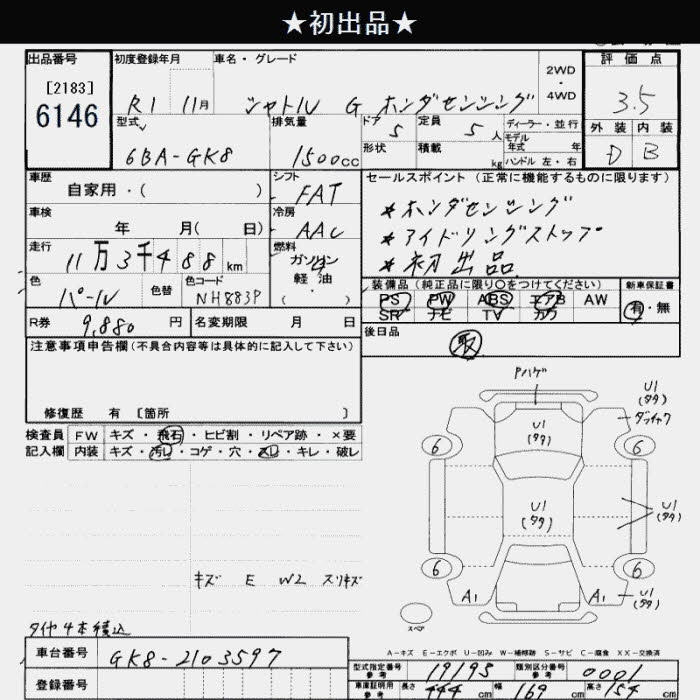 ★初出品★
出品番号
[2183]
6146
初度登録年月
R1 11月
車名・グレード
シャトル G ホンダセンシング
2WD
・
4WD
評価点
3.5
外装 内装
D B
型式
6BA-GK8
排気量
1500cc
ドア
5
定員
5人
ディーラー・並行
モデル
年式 年
形状
積載
kg
ハンドル 左・右
車歴
自家用・( )
シフト
FAT
セールスポイント (正常に機能するものに限ります)
*ホンダセンシング
*アイドリングストップ
*初出品
車検
年 月( 日)
冷房
AAC
走行
11万3千488km
燃料
ガソリン
軽油
( ・ )
色
パール
色替
色コード
NH883P
装備品 (純正品に限り○をつけてください)
PS PW ABS エアB AW
SR ナビ TV カワ
新車保証書
有・無
R券
9,880 円
名変期限 月 日
後日品
取
注意事項申告欄(不具合内容等は具体的に記入して下さい)
修復歴 有 [箇所 ]
検査員 FW キズ・飛石・ヒビ割・リペア跡・×要
記入欄 内装 キズ・汚レ・コゲ・穴・スレ・キレ・破レ
Pハゲ
U1
(タタ)
U1
(タタ)
ダフィャク
6
6
U1
(タタ)
U1
(タタ)
6
6
A1
A1
U1
(タタ)
スペア
キズ E W2 スリキズ
タイヤ4本積込
A-キズ E-エクボ U-凹み W-補修跡 S-サビ C-腐食 XX-交換済
車台番号
GK8-2103597
登録番号
型式指定番号
参考
19195
類別区分番号
参考
0001
車庫証明用
参考
長さ 444cm 幅 169cm 高さ 154cm